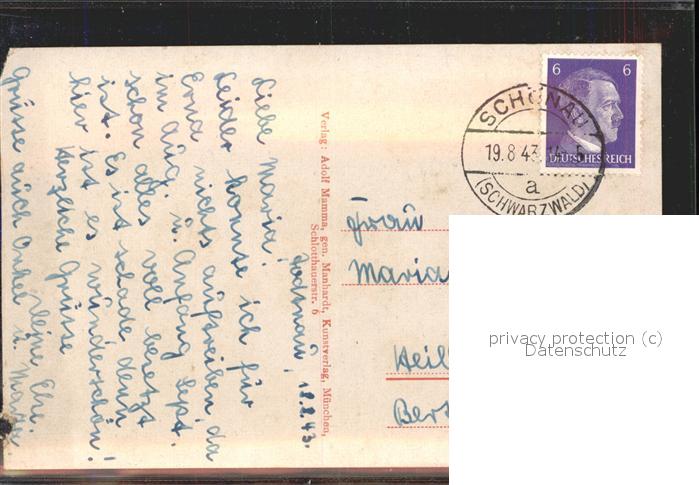 6 6
DEUTSCHES REICH
SCHÖNAU
19.8.43
a
(SCHWARZWALD)
Todtnau, 18.8.43.
Liebe Maria!
Leider konnte ich für
Erna nichts auftreiben da
im Aug. u. Anfang Sept.
schon alles voll besetzt
ist. Es ist schade denn
hier ist es wunderschön!
Herzliche Grüsse
Deine
Grüsse auch Onkel u.
Verlag: Adolf Mamma, gen. Manhardt, Kunstverlag, München,
Schlotthauerstr. 6
Frau
Maria
Heil
Ber
privacy protection (c)
Datenschutz